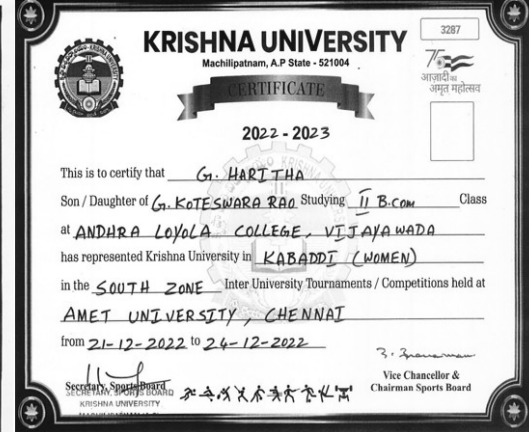 3287
KRISHNA UNIVERSITY
Machilipatnam, A.P State - 521004
CERTIFICATE
75
आज़ादी का
अमृत महोत्सव
2022 - 2023
This is to certify that G. HARITHA
Son / Daughter of G. KOTESWARA RAO Studying II B.com Class
at ANDHRA LOYOLA COLLEGE, VIJAYAWADA
has represented Krishna University in KABADDI (WOMEN)
in the SOUTH ZONE Inter University Tournaments / Competitions held at
AMET UNIVERSITY, CHENNAI
from 21-12-2022 to 24-12-2022
Secretary, Sports Board
SECRETARY, SPORTS BOARD
KRISHNA UNIVERSITY
Vice Chancellor &
Chairman Sports Board